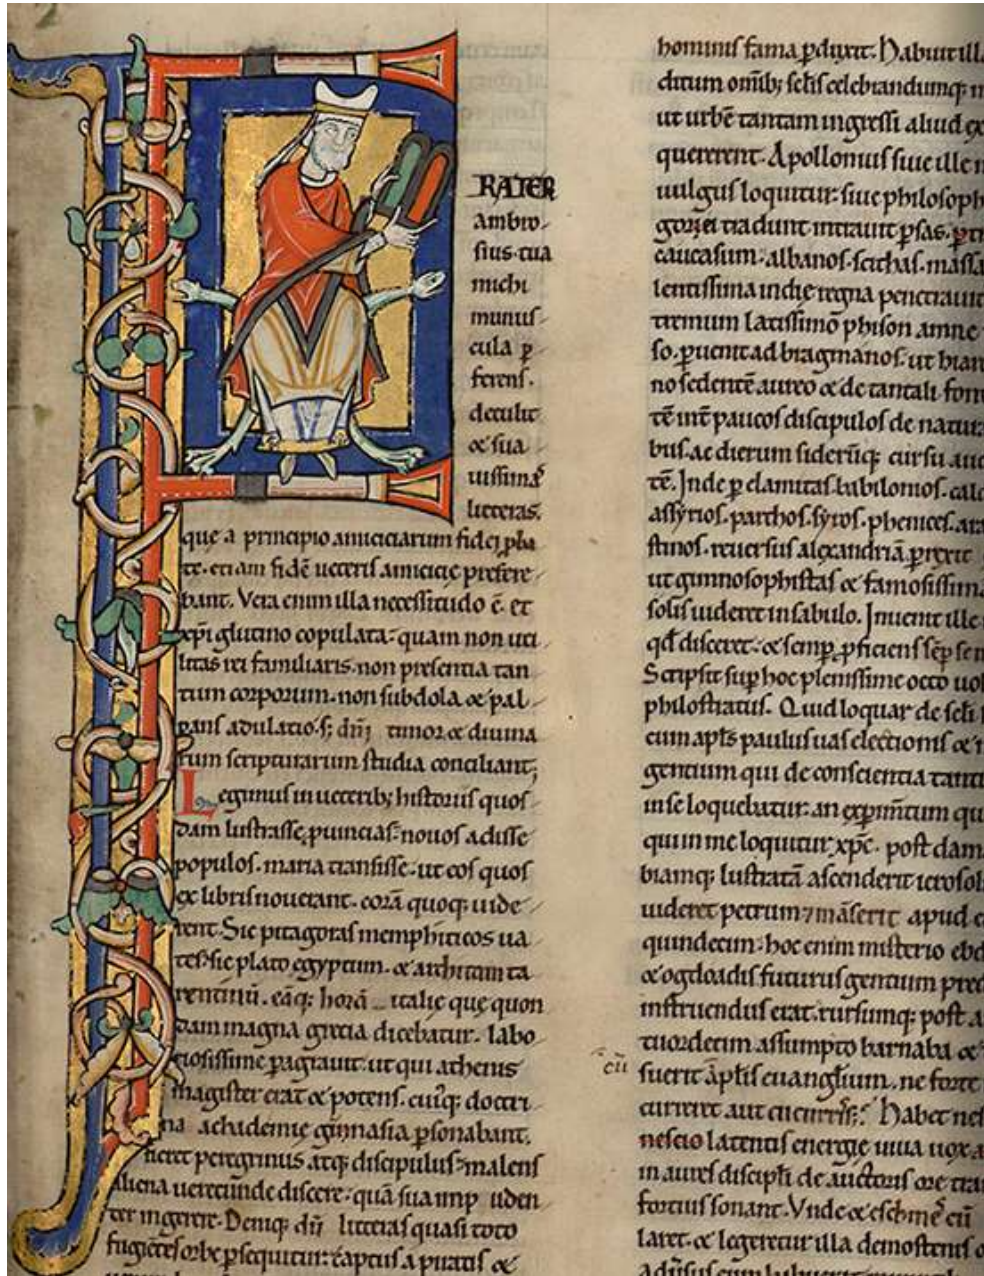 RATER
ambro
sius tua
michi
munus
cula ꝑ
ferens.
detulit
& sua
uissimaſ
litteras.
que a principio amiciciarum fidei ꝓba
te. etiam fidē ueteris amicicie prefere
bant. Vera enim illa necessitudo ē. et
xp̄i glutino copulata: quam non uti
litas rei familiaris. non presentia tan
tum corporum. non subdola & pal
pans adulatio. s; dn̄i timor & diuina
rum scripturarum studia conciliant;
Legimus in ueterib; historiis quos
dam lustrasse ꝓuincias: nouos adisse
populos. maria transisse. ut eos quos
ex libris nouerant. corā quoq; uide
rent. Sic pitagoras memphiticos ua
tes. sic plato egyptum. & architam ta
rentinū. eāq; horā italie que quon
dam magna grecia dicebatur. labo
riosissime ꝑagrauit. ut qui athenis
magister erat & potens. cuiꝰq; doctri
na achademie gimnasia ꝑsonabant.
fieret peregrinus atq; discipulus: malens
aliena uerecunde discere. quā sua imp uden
ter ingerere. Deniq; dū litteras quasi toto
fugientes orbe ꝑsequitur. captus a piratis &
hominis fama ꝑduxit. Habuit illa
ditum omīb; sclīs celebrandumq;
ut urbē tantam ingressi aliud ex
quererent. Apollonius siue ille
uulgus loquitur. siue philosoph
tradunt intrauit ꝑsas.
caucasum. albanos. scithas. massa
lentissima indie regna penetrauit
tremum latissimo phison amne
so. ꝑuenit ad bragmanos. ut hiar
no sedentē aureo & de tantali fon
tē int̄ paucos discipulos de natura
bus. ac dierum siderūq; cursu aud
tē. Inde ꝑ elamitas babilonios. cald
assyrios. parthos. syros. phenices. ara
stinos. reuersus alexandriā. ꝑrexit
ut gimnosophistas & famosissima
solis uideret in sabulo. Inuenit ille
qd̄ disceret. & semꝑ ꝓficiens sēꝑ se m
Scripsit suꝑ hoc plenissime octo uol
philostratus. Quid loquar de scl̄i
cum apl̄s paulus uas electionis &
gentium qui de conscientia tanti
in se loquebatur. an exꝑim̄tum qu
qui in me loquitur xp̄c. post dam
biamq; lustratā ascenderit ierosol
uideret petrum ⁊ māserit apud
quindecim. hoc enim misterio ebd
& ogdoadis futurus gentium pred
instruendus erat. rursumq; post
tuordecim assumpto barnaba &
cū
fuerit ap̄lis euanglium. ne forte
curreret aut cucurrisset. Habet ne
nescio latentis energie uiua uox
in aures discipl̄i de auctoris ore tra
fortius sonant. Vnde & eschineſ cū
laret. & legeretur illa demostenis